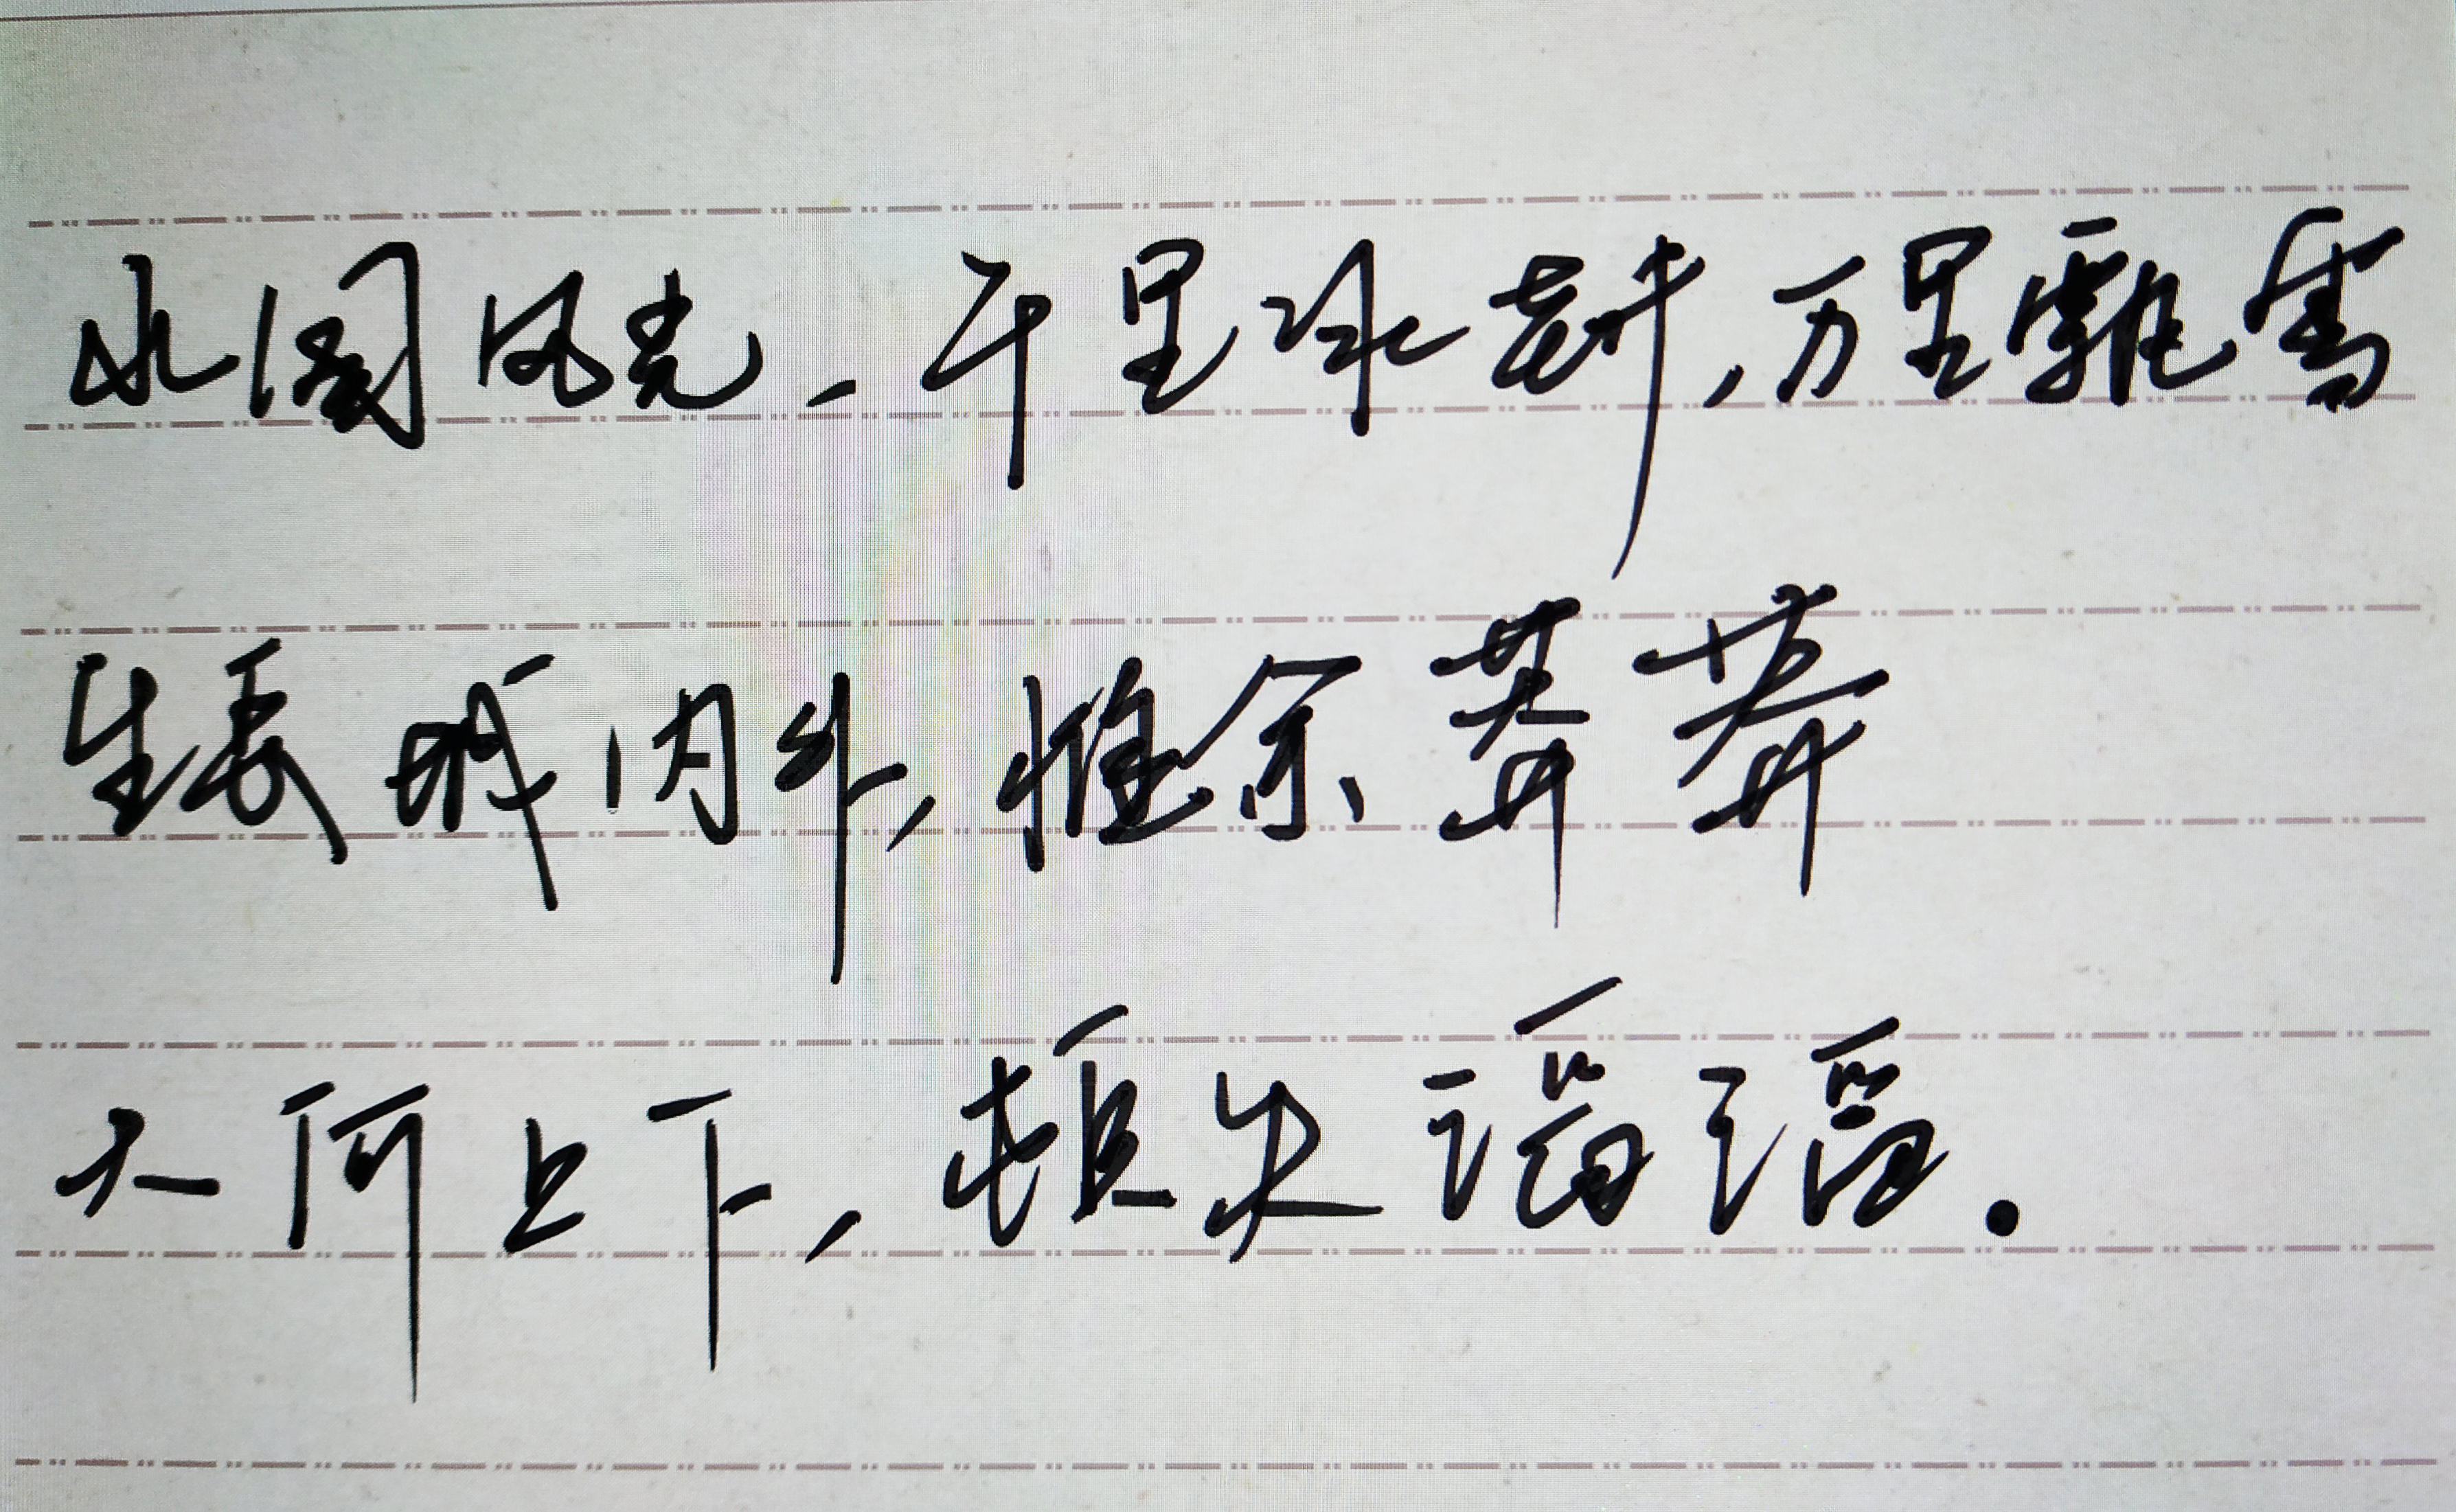 北国风光,千里冰封,万里飘雪
生长城内外,惟余莽莽
大河上下,顿失滔滔.